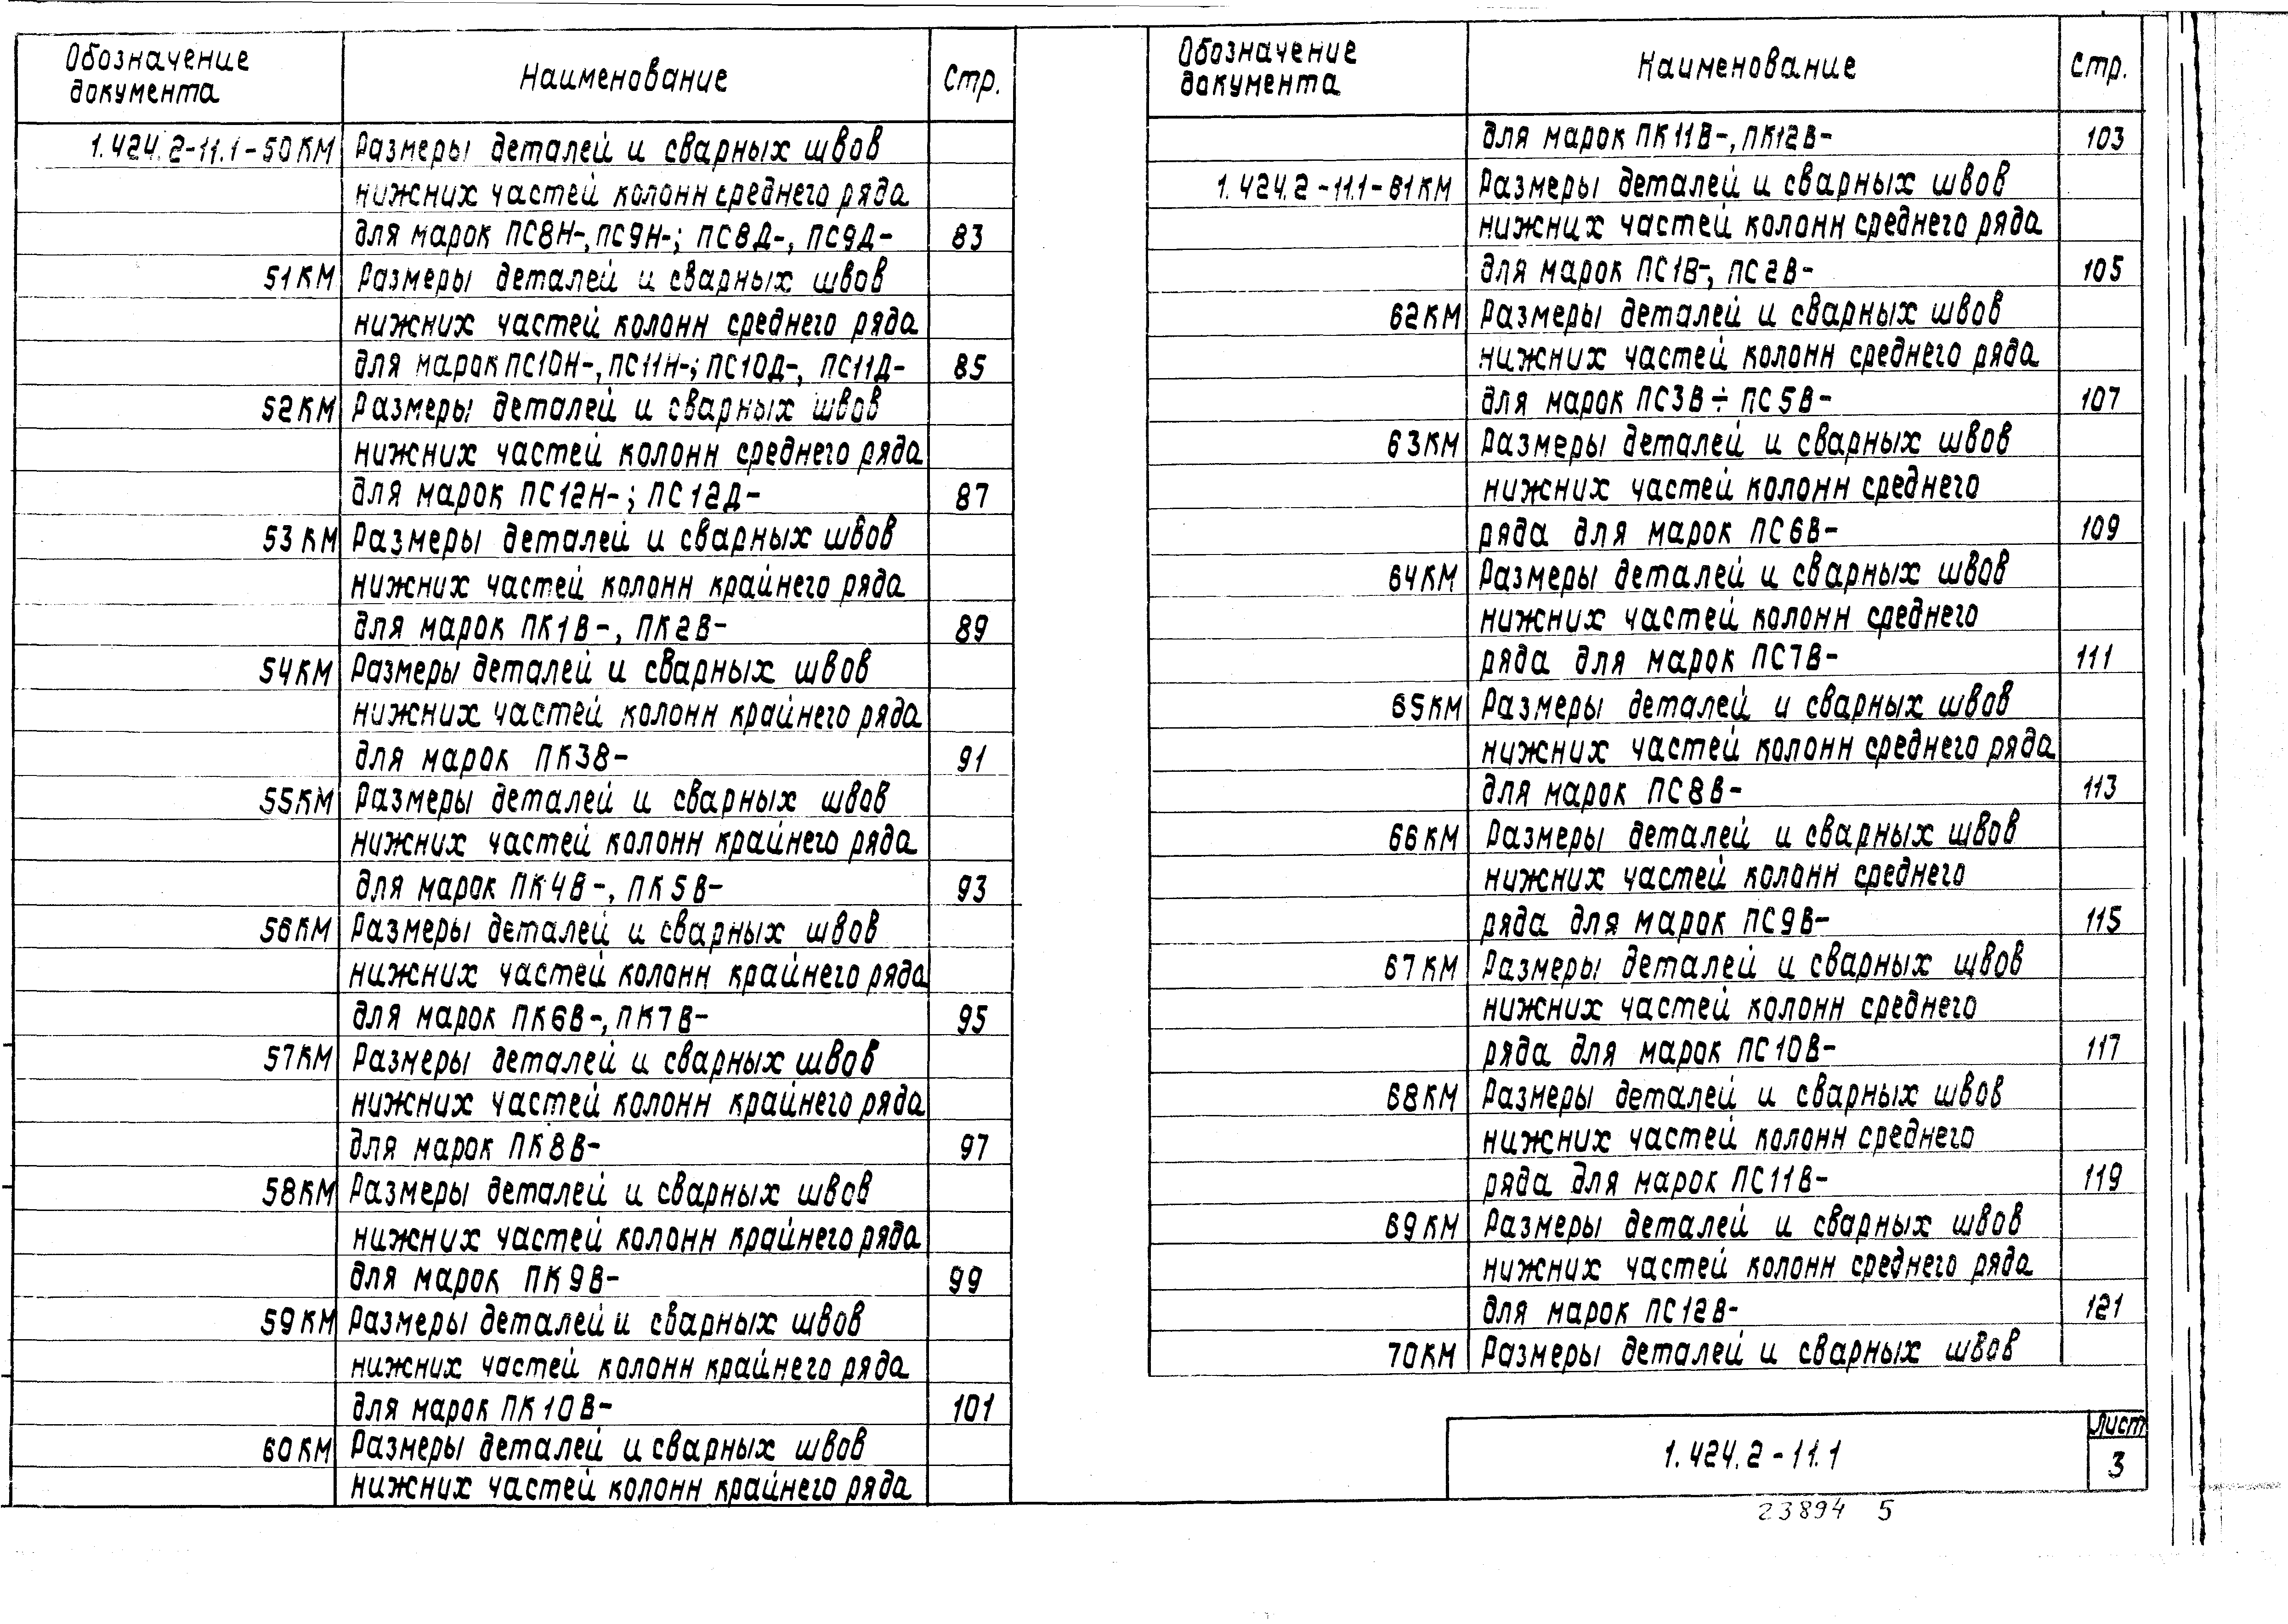 Обозначение документа Наименование Стр.
1.424.2-11.1-50КМ Размеры деталей и сварных швов
нижних частей колонн среднего ряда
для марок ПС8Н-, ПС9Н-; ПС8Д-, ПС9Д- 83
51КМ Размеры деталей и сварных швов
нижних частей колонн среднего ряда
для марок ПС10Н-, ПС11Н-; ПС10Д-, ПС11Д- 85
52КМ Размеры деталей и сварных швов
нижних частей колонн среднего ряда
для марок ПС12Н-; ПС12Д- 87
53КМ Размеры деталей и сварных швов
нижних частей колонн крайнего ряда
для марок ПК1В-, ПК2В- 89
54КМ Размеры деталей и сварных швов
нижних частей колонн крайнего ряда
для марок ПК3В- 91
55КМ Размеры деталей и сварных швов
нижних частей колонн крайнего ряда
для марок ПК4В-, ПК5В- 93
56КМ Размеры деталей и сварных швов
нижних частей колонн крайнего ряда
для марок ПК6В-, ПК7В- 95
57КМ Размеры деталей и сварных швов
нижних частей колонн крайнего ряда
для марок ПК8В- 97
58КМ Размеры деталей и сварных швов
нижних частей колонн крайнего ряда
для марок ПК9В- 99
59КМ Размеры деталей и сварных швов
нижних частей колонн крайнего ряда
для марок ПК10В- 101
60КМ Размеры деталей и сварных швов
нижних частей колонн крайнего ряда
Обозначение документа Наименование Стр.
для марок ПК11В-, ПК12В- 103
1.424.2-11.1-61КМ Размеры деталей и сварных швов
нижних частей колонн среднего ряда
для марок ПС1В-, ПС2В- 105
62КМ Размеры деталей и сварных швов
нижних частей колонн среднего ряда
для марок ПС3В÷ПС5В- 107
63КМ Размеры деталей и сварных швов
нижних частей колонн среднего
ряда для марок ПС6В- 109
64КМ Размеры деталей и сварных швов
нижних частей колонн среднего
ряда для марок ПС7В- 111
65КМ Размеры деталей и сварных швов
нижних частей колонн среднего ряда
для марок ПС8В- 113
66КМ Размеры деталей и сварных швов
нижних частей колонн среднего
ряда для марок ПС9В- 115
67КМ Размеры деталей и сварных швов
нижних частей колонн среднего
ряда для марок ПС10В- 117
68КМ Размеры деталей и сварных швов
нижних частей колонн среднего
ряда для марок ПС11В- 119
69КМ Размеры деталей и сварных швов
нижних частей колонн среднего ряда
для марок ПС12В- 121
70КМ Размеры деталей и сварных швов
1.424.2-11.1
Лист
3
23894 5